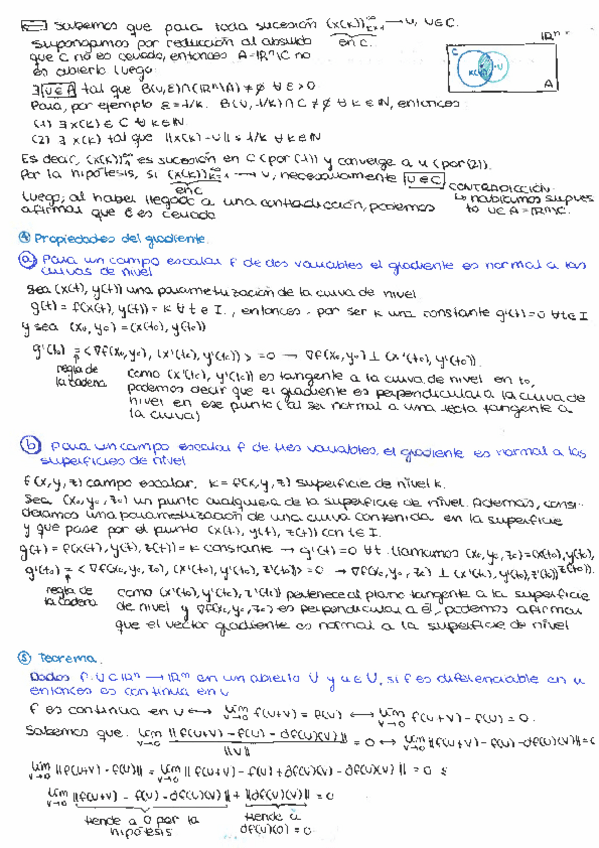 ⇐ Sabemos que para toda sucesión (x(k))∞k=1 → u, u∈C.
en C.
Supongamos por reducción al absurdo
que C no es cerrado, entonces A=ℝⁿ\C no
es abierto luego:
∃ u∈A tal que B(u,ε)∩(ℝⁿ\A)≠∅ ∀ε>0
Para, por ejemplo ε=1/k. B(u,1/k)∩C≠∅ ∀k∈ℕ, entonces
(1) ∃x(k)∈C ∀k∈ℕ
(2) ∃x(k) tal que ||x(k)-u||≤1/k ∀k∈ℕ
Es decir, (x(k))∞k=1 es sucesión en C (por (1)) y converge a u (por (2)).
Por la hipótesis, si (x(k))∞k=1 → u, necesariamente u∈C CONTRADICCIÓN
en C
↳ habíamos supues
Luego, al haber llegado a una contradicción, podemos to u∈A=ℝⁿ\C.
afirmar que C es cerrado
ℝⁿ
C
x(k)
u
A
④ Propiedades del gradiente.
ⓐ Para un campo escalar f de dos variables el gradiente es normal a las
curvas de nivel
Sea (x(t), y(t)) una parametrización de la curva de nivel
g(t) = f(x(t), y(t)) = k ∀t∈I., entonces, por ser k una constante g'(t)=0 ∀t∈I
y sea (x₀,y₀) = (x(t₀), y(t₀))
g'(t₀) = <∇f(x₀,y₀), (x'(t₀), y'(t₀))> = 0 → ∇f(x₀,y₀) ⊥ (x'(t₀), y'(t₀)).
regla de
la cadena
como (x'(t₀), y'(t₀)) es tangente a la curva de nivel en t₀,
podemos decir que el gradiente es perpendicular a la curva de
nivel en ese punto (al ser normal a una recta tangente a
la curva)
ⓑ Para un campo escalar f de tres variables, el gradiente es normal a las
superficies de nivel
f(x,y,z) campo escalar, k = f(x,y,z) superficie de nivel k.
Sea (x₀,y₀,z₀) un punto cualquiera de la superficie de nivel. Además, consi-
deramos una parametrización de una curva contenida en la superficie
y que pase por el punto (x(t), y(t), z(t)) con t∈I.
g(t) = f(x(t), y(t), z(t)) = k constante → g'(t)=0 ∀t. Llamamos (x₀,y₀,z₀)=(x(t₀),y(t₀),
z(t₀)).
g'(t₀) = <∇f(x₀,y₀,z₀), (x'(t₀), y'(t₀), z'(t₀))> = 0 → ∇f(x₀,y₀,z₀) ⊥ (x'(t₀), y'(t₀), z'(t₀))
regla de
la cadena
como (x'(t₀), y'(t₀), z'(t₀)) pertenece al plano tangente a la superficie
de nivel y ∇f(x₀,y₀,z₀) es perpendicular a él, podemos afirmar
que el vector gradiente es normal a la superficie de nivel
⑤ Teorema.
Dados f: U⊂ℝⁿ → ℝᵐ en un abierto U y u∈U, si f es diferenciable en u
entonces es continua en u
f es continua en u ↔ lim v→0 f(u+v) = f(u) ↔ lim v→0 f(u+v) - f(u) = 0.
Sabemos que. lim v→0 ||f(u+v) - f(u) - df(u)(v)|| / ||v|| = 0 ↔ lim v→0 ||f(u+v) - f(u) - df(u)(v)|| = 0
lim v→0 ||f(u+v) - f(u)|| = lim v→0 ||f(u+v) - f(u) + df(u)(v) - df(u)(v)|| = 0 ≤
lim v→0 ||f(u+v) - f(u) - df(u)(v)|| + ||df(u)(v)|| = 0
tiende a 0 por la
hipótesis
tiende a
df(u)(0) = 0.